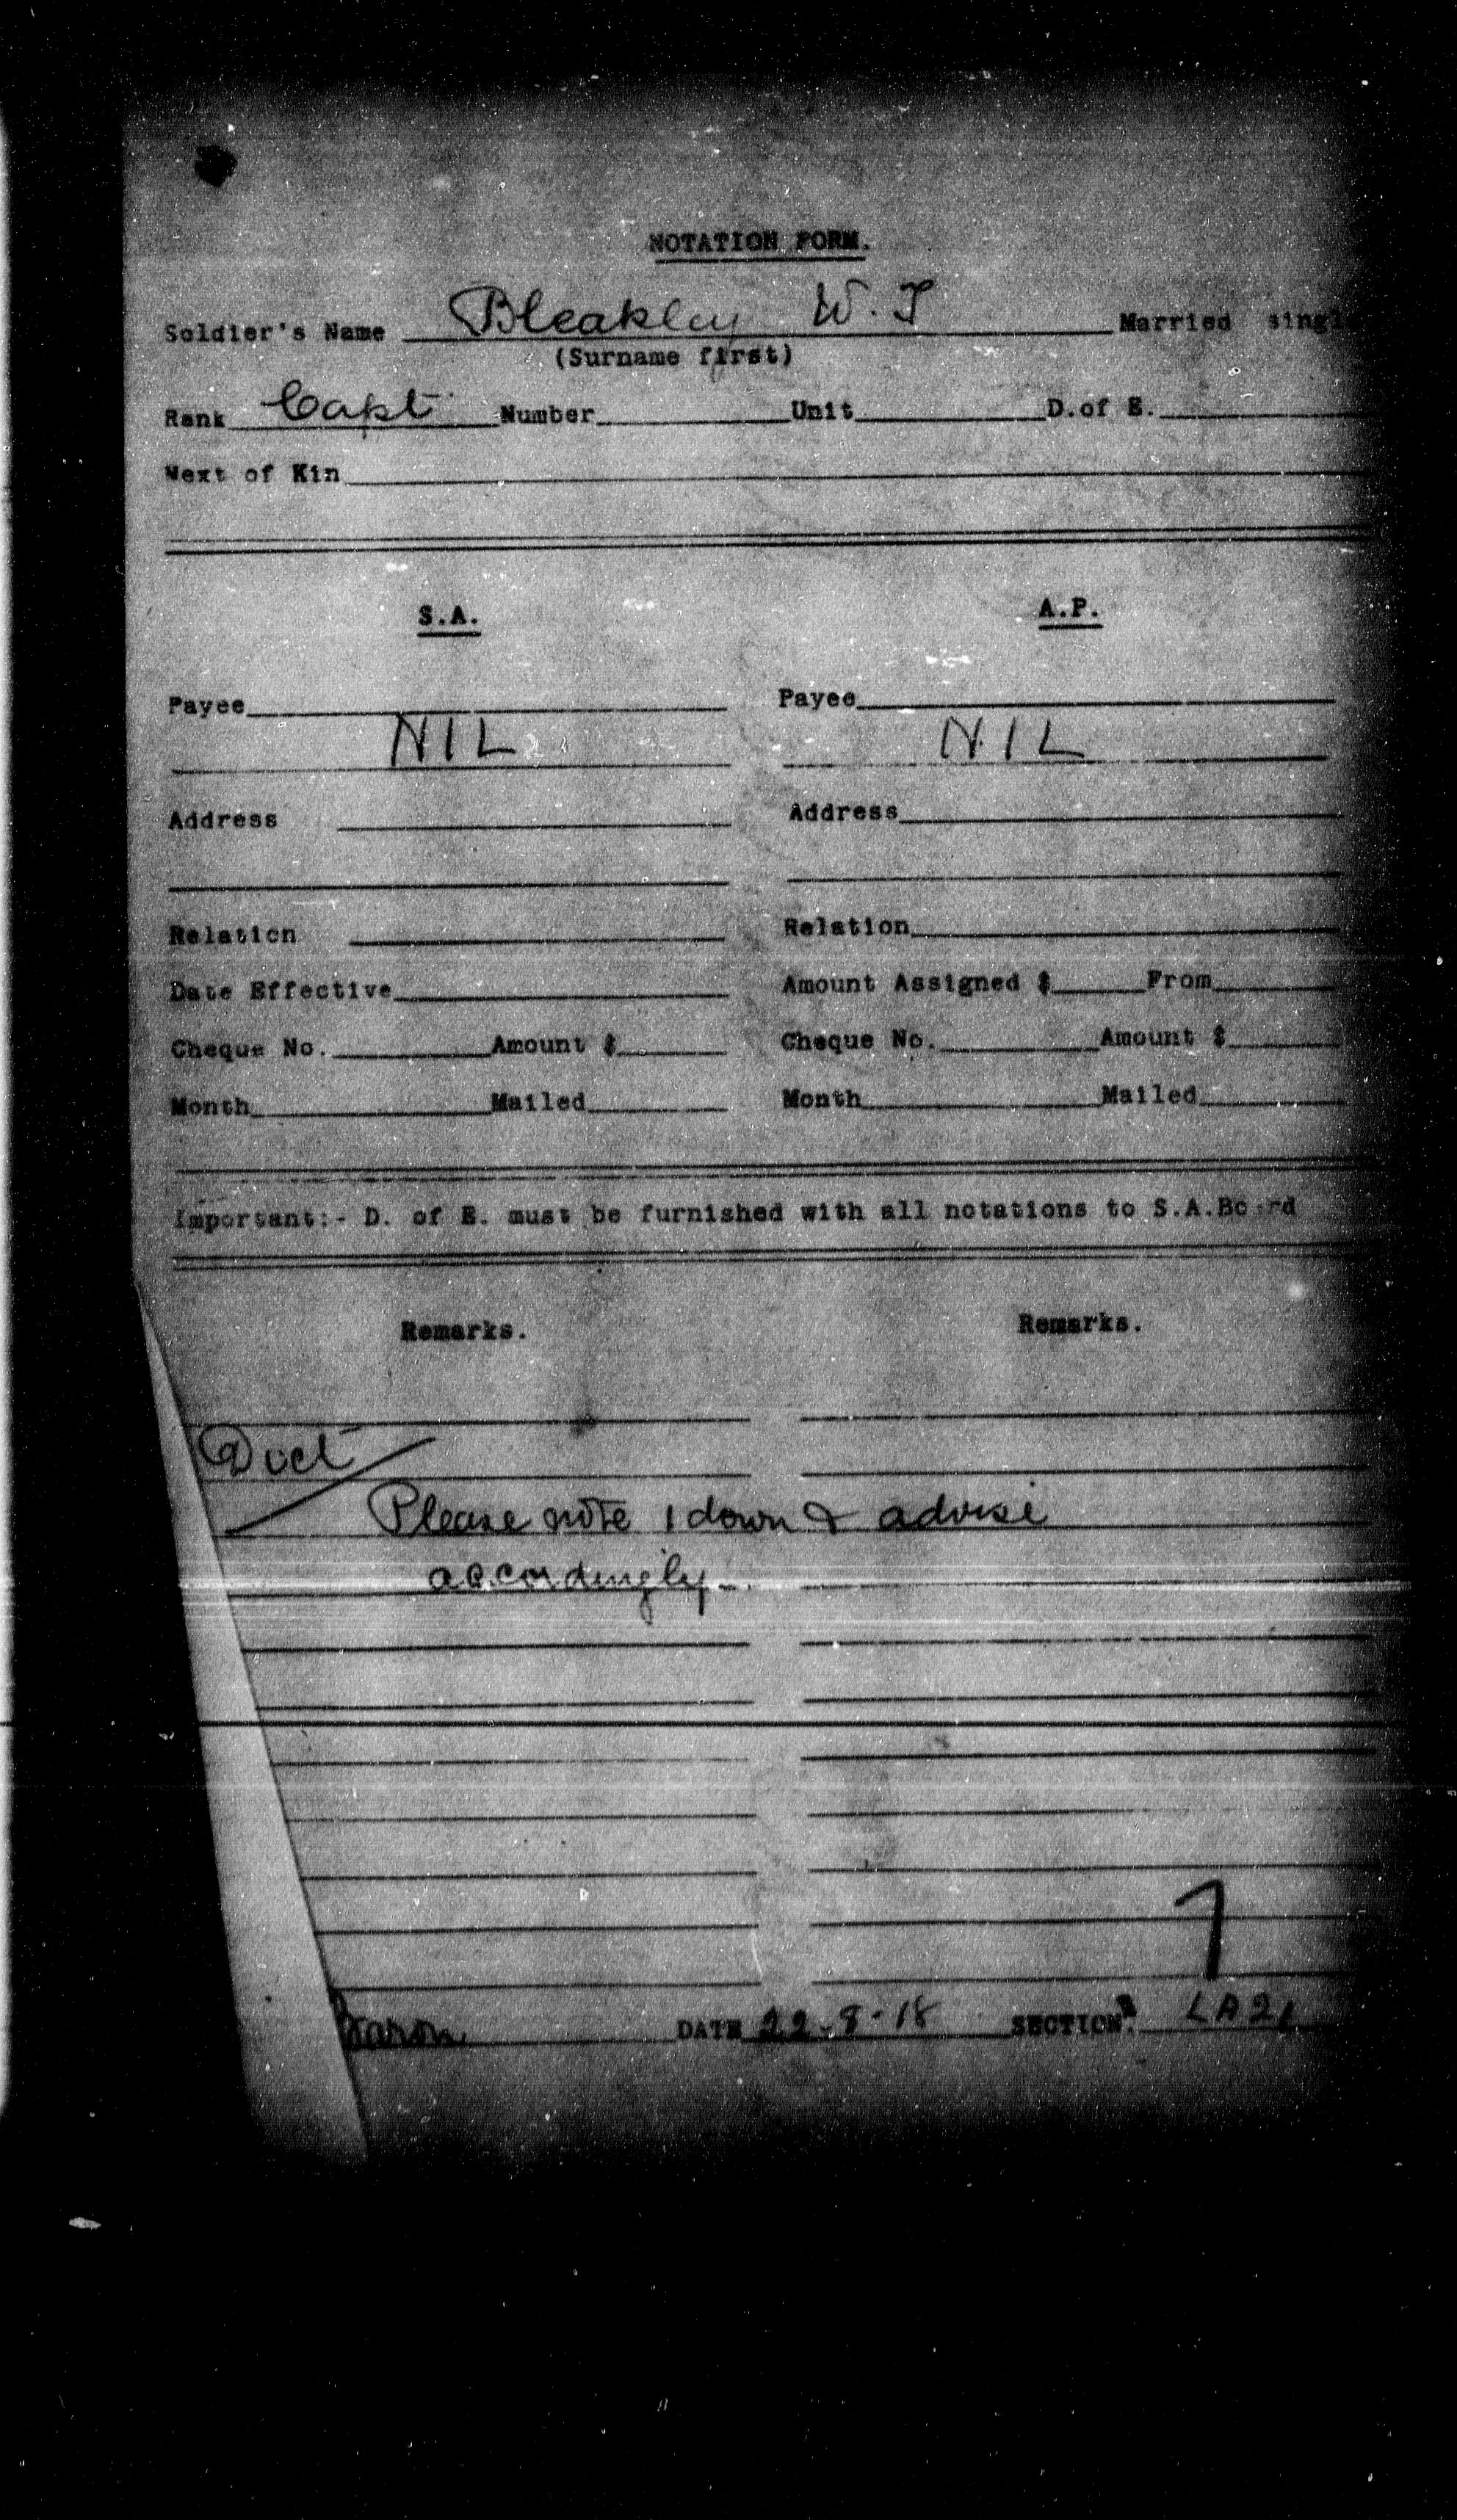 NOTATION FORM.
Soldier's Name Bleakley W. J Married singl
(Surname first)
Rank Capt Number Unit D.of E.
Next of Kin
S.A. A.P.
Payee Payee
NIL NIL
Address Address
Relation Relation
Date Effective Amount Assigned $ From
Cheque No. Amount $ Cheque No. Amount $
Month Mailed Month Mailed
Important:- D. of E. must be furnished with all notations to S.A.Board
Remarks. Remarks.
Please note 1 down & advise
accordingly
DATE 22-8-18 SECTION. LA21